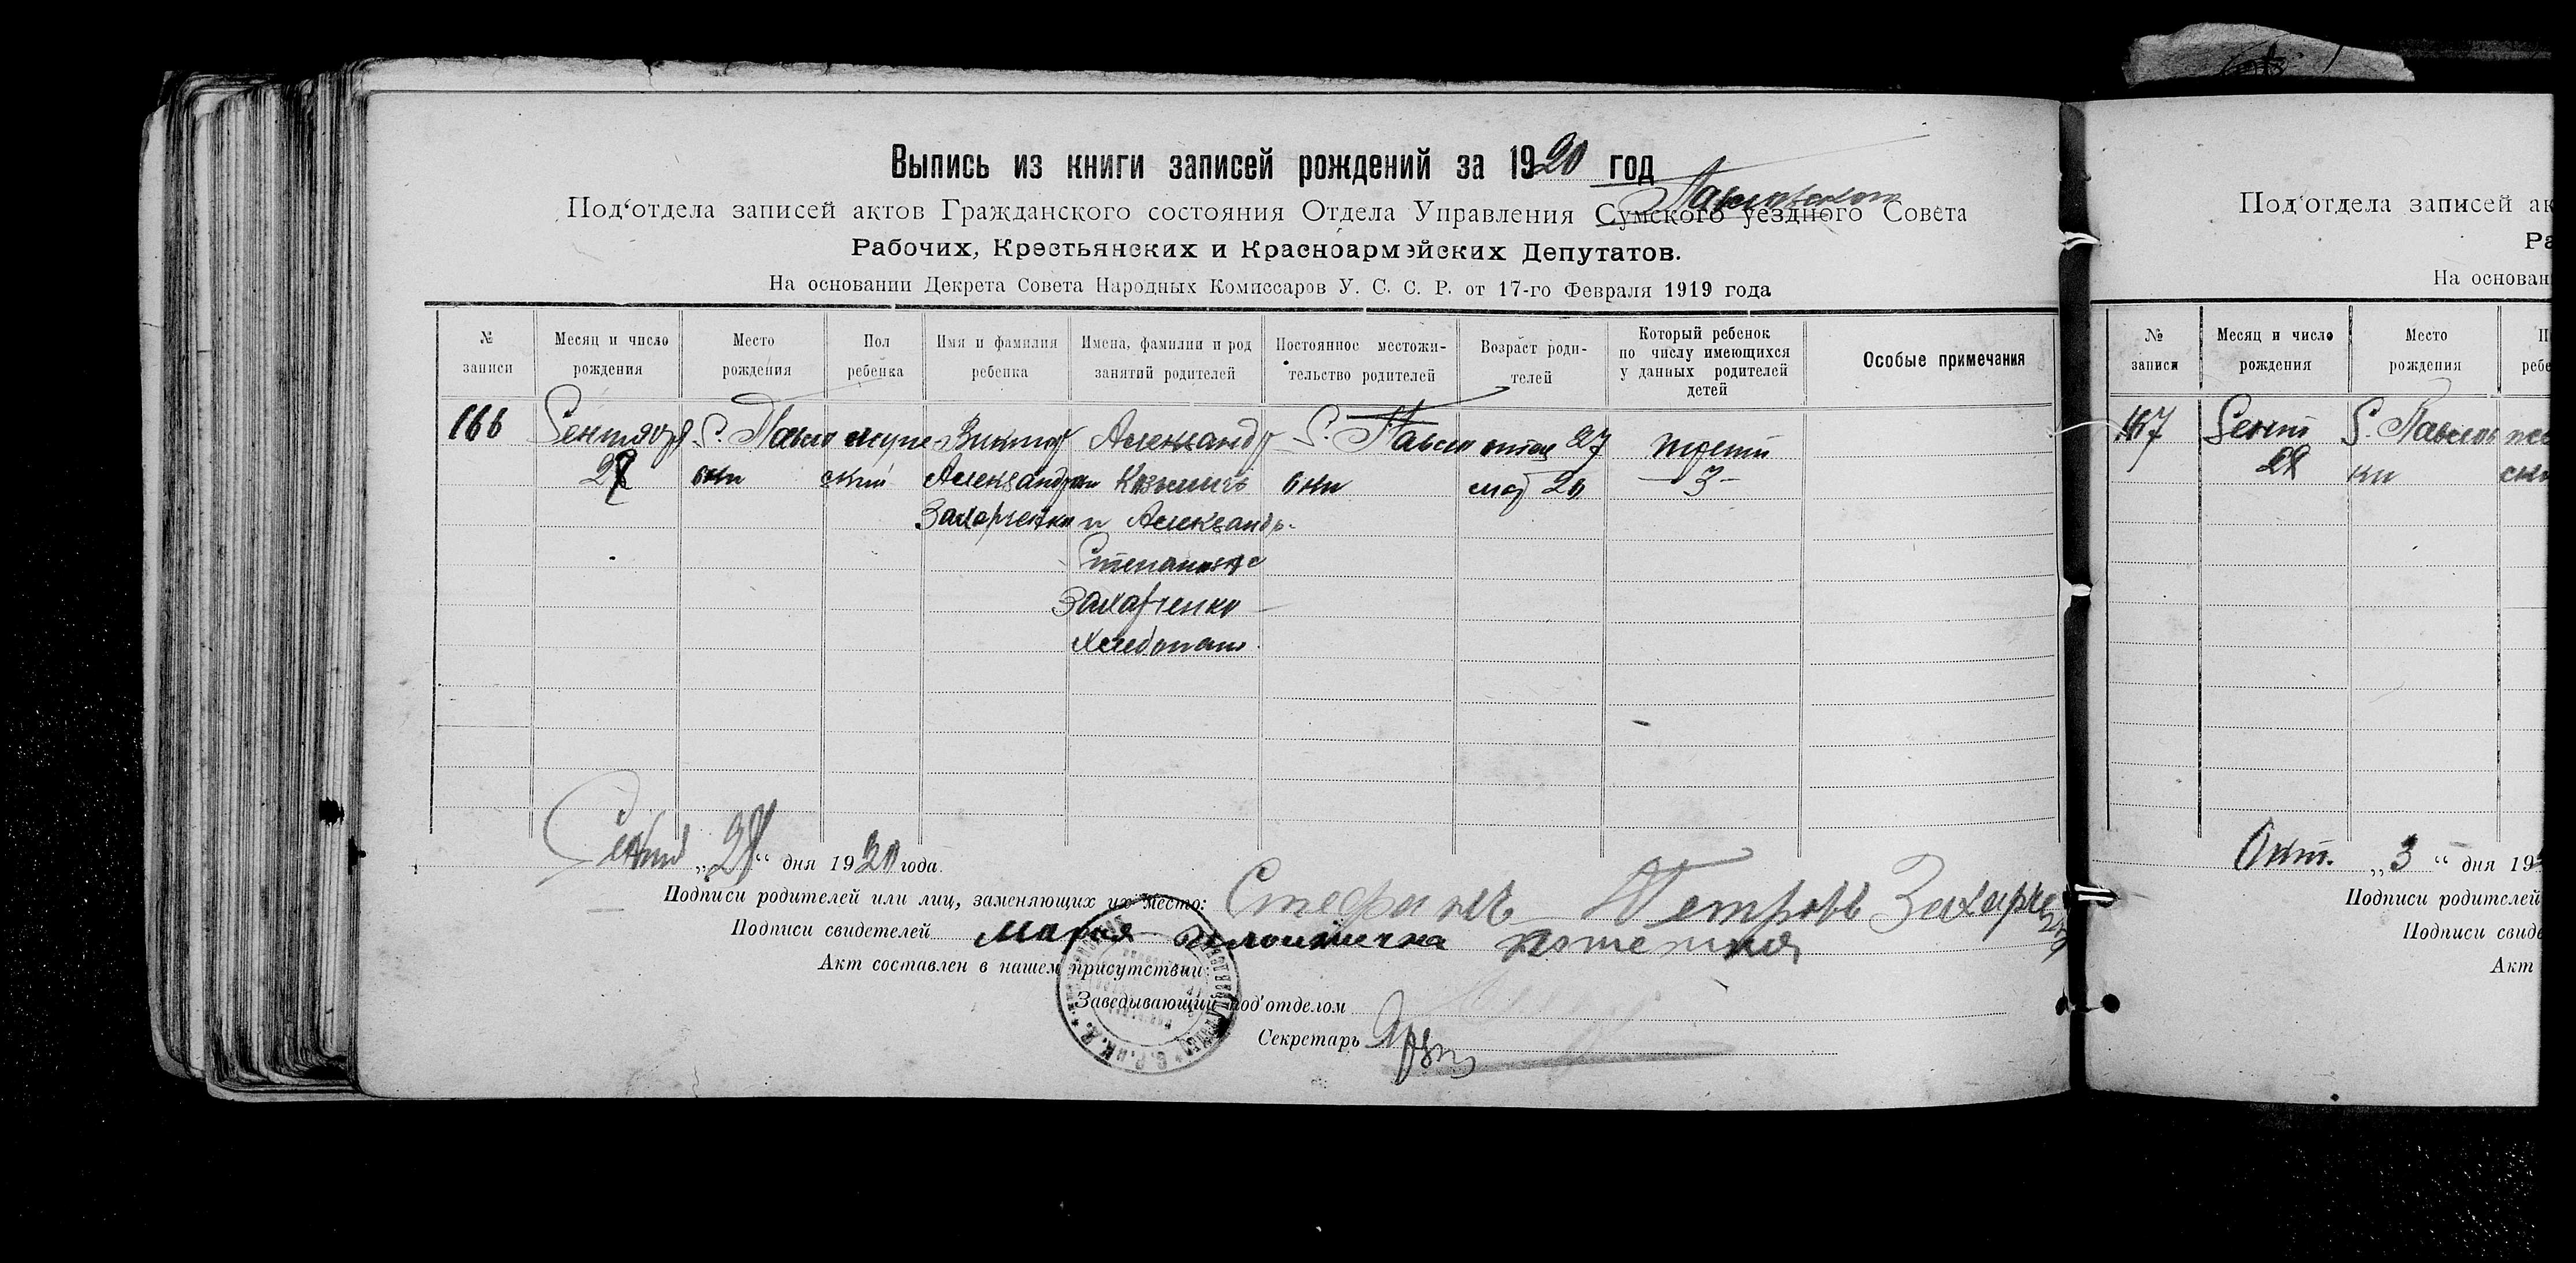 Выпись из книги записей рождений за 1920 год
Павловского
Под‘отдела записей актов Гражданского состояния Отдела Управления Сумского уездного Совета
Рабочих, Крестьянских и Красноармейских Депутатов.
На основании Декрета Совета Народных Комиссаров У. С. С. Р. от 17-го Февраля 1919 года
№ записи
Месяц и число рождения
Место рождения
Пол ребенка
Имя и фамилия ребенка
Имена, фамилии и род занятий родителей
Постоянное местожительство родителей
Возраст родителей
Который ребенок по числу имеющихся у данных родителей детей
Особые примечания
166 Сентября С. Павло мужс Виктор Александр С. Павло отец 27 третий
вки ский Александров Козьмичъ вки мат 20 – 3 –
Захарченко и Александр.
Степановна
Захарченко
Хлебопаш.
Сентяб „28“ дня 1920 года.
Подписи родителей или лиц, заменяющих их место: Стефанъ Петровъ Захарченко
Подписи свидетелей Мария
Акт составлен в нашем присутствии:
Заведывающий под‘отделом
Секретарь
Под‘отдела записей ак
Ра
На основан
№ записи
Месяц и число рождения
Место рождения
П
ребе
167 Сент С. Павлов
ки
Окт. „3“ дня 19
Подписи родителей
Подписи свиде
Акт